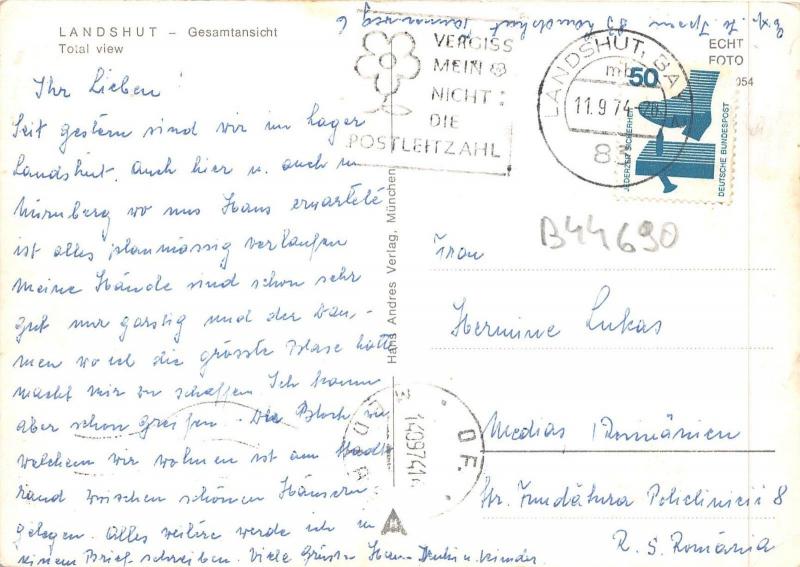 LANDSHUT – Gesamtansicht
Total view
83 Landshut
VERGISS
MEIN
NICHT:
DIE
POSTLEITZAHL
LANDSHUT, BAY
mb
11.9.74
83
50
JEDERZEIT SICHERHEIT
DEUTSCHE BUNDESPOST
ECHT
FOTO
054
Ihr Lieben!
Seit gestern sind wir im Lager
Landshut. Auch hier u. auch in
Nürnberg wo uns Hans erwartete
ist alles planmässig verlaufen
meine Hände sind schon sehr
gut nur garstig und der Dau-
men wo ich die grösste Blase hatte
macht mir zu schaffen. Ich kann
aber schon greifen. Die Block in
welchem wir wohnen ist am Stadt
rand zwischen schönen Häusern
gelegen. Alles weitere werde ich in
einem Brief schreiben. Viele Grüsse u. Kinder.
Hans Andres Verlag, München
B44690
Frau
Hermine Lukas
Medias Romänien
Str. Fundătura Policlinicii 8
R. S. România
O.F.
140974